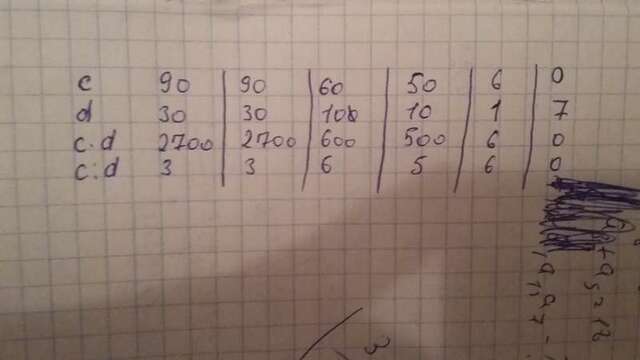 c 90 90 60 50 6 0
d 30 30 10 10 1 7
c.d 2700 2700 600 500 6 0
c:d 3 3 6 5 6 0
3